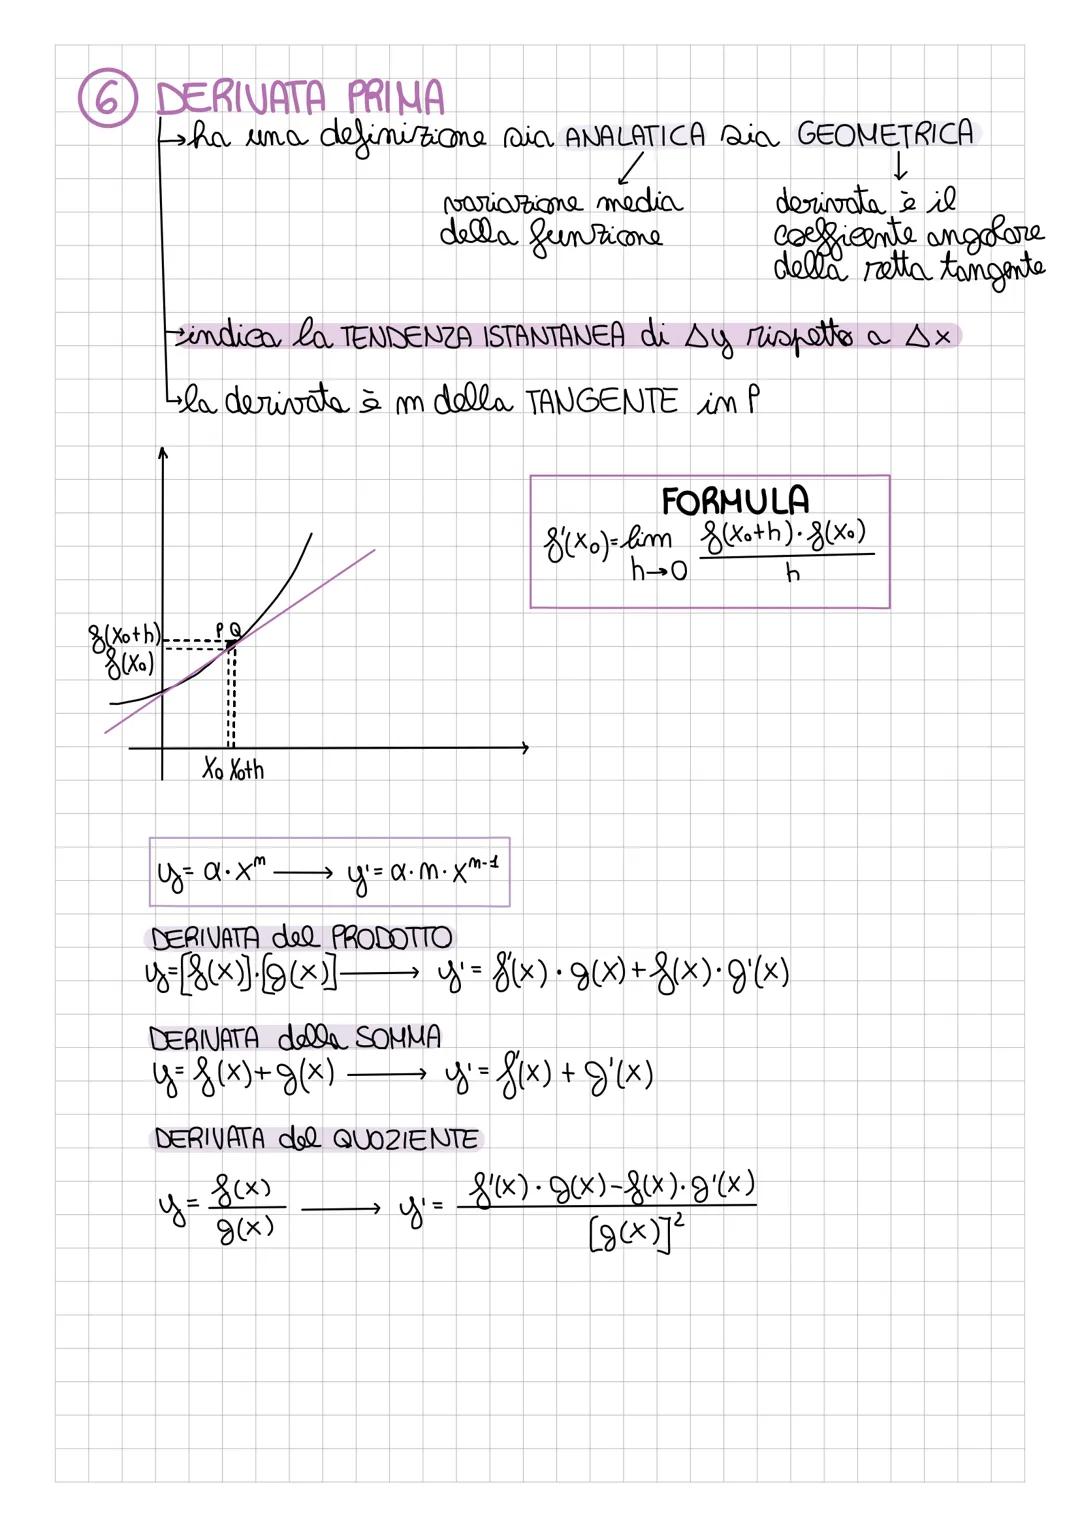 6 DERIVATA PRIMA
→ha una definizione sia ANALATICA sia GEOMETRICA
variazione media
della funzione
derivata è il
coefficente angolare
della retta tangente
→indica la TENDENZA ISTANTANEA di Δy rispetto a Δx
→la derivata è m della TANGENTE in P
FORMULA
f'(x₀)=lim f(x₀+h)·f(x₀)
h→0 h
P Q
f(x₀+h)
f(x₀)
x₀ x₀+h
y= a·xᵐ → y'= a·m·xᵐ⁻¹
DERIVATA del PRODOTTO
y=[f(x)]·[g(x)] → y'= f'(x)·g(x)+f(x)·g'(x)
DERIVATA della SOMMA
y= f(x)+g(x) → y'= f'(x)+g'(x)
DERIVATA del QUOZIENTE
y= f(x)/g(x) → y'= f'(x)·g(x)-f(x)·g'(x)/[g(x)]²